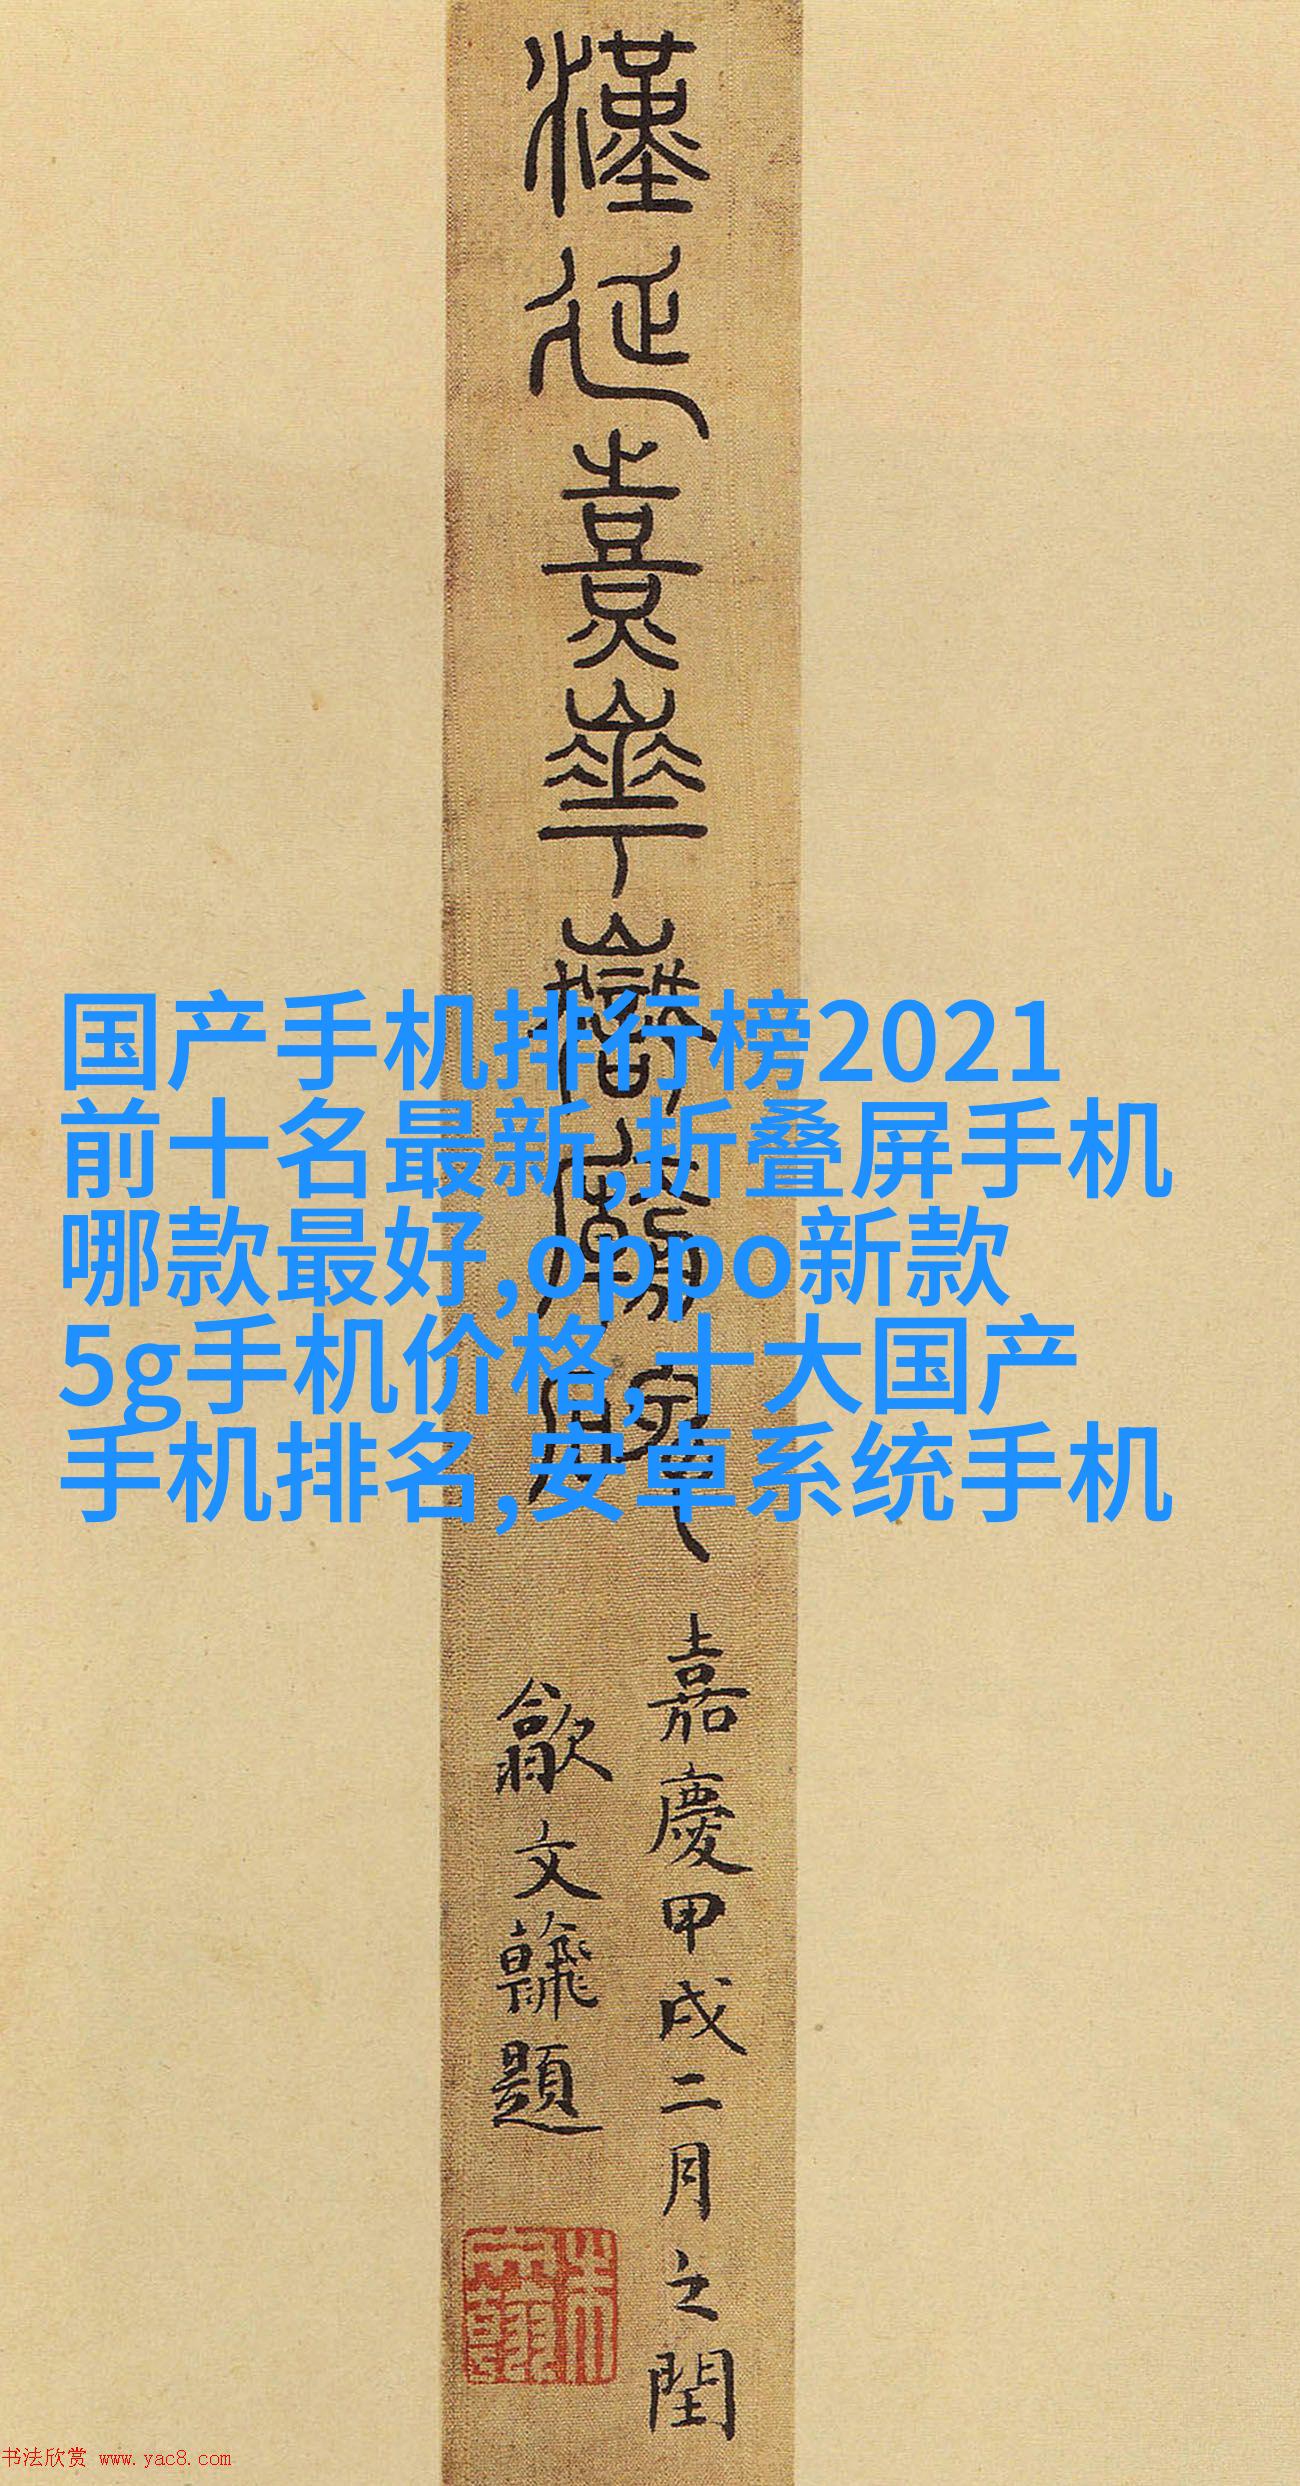 漢延熹華嶽廟碑
嘉慶甲戌二月之閏
歙文
題
国产手机排行榜2021
前十名最新,折叠屏手机
哪款最好,oppo新款
5g手机价格,十大国产
手机排名,安卓系统手机
书法欣赏 www.yac8.com